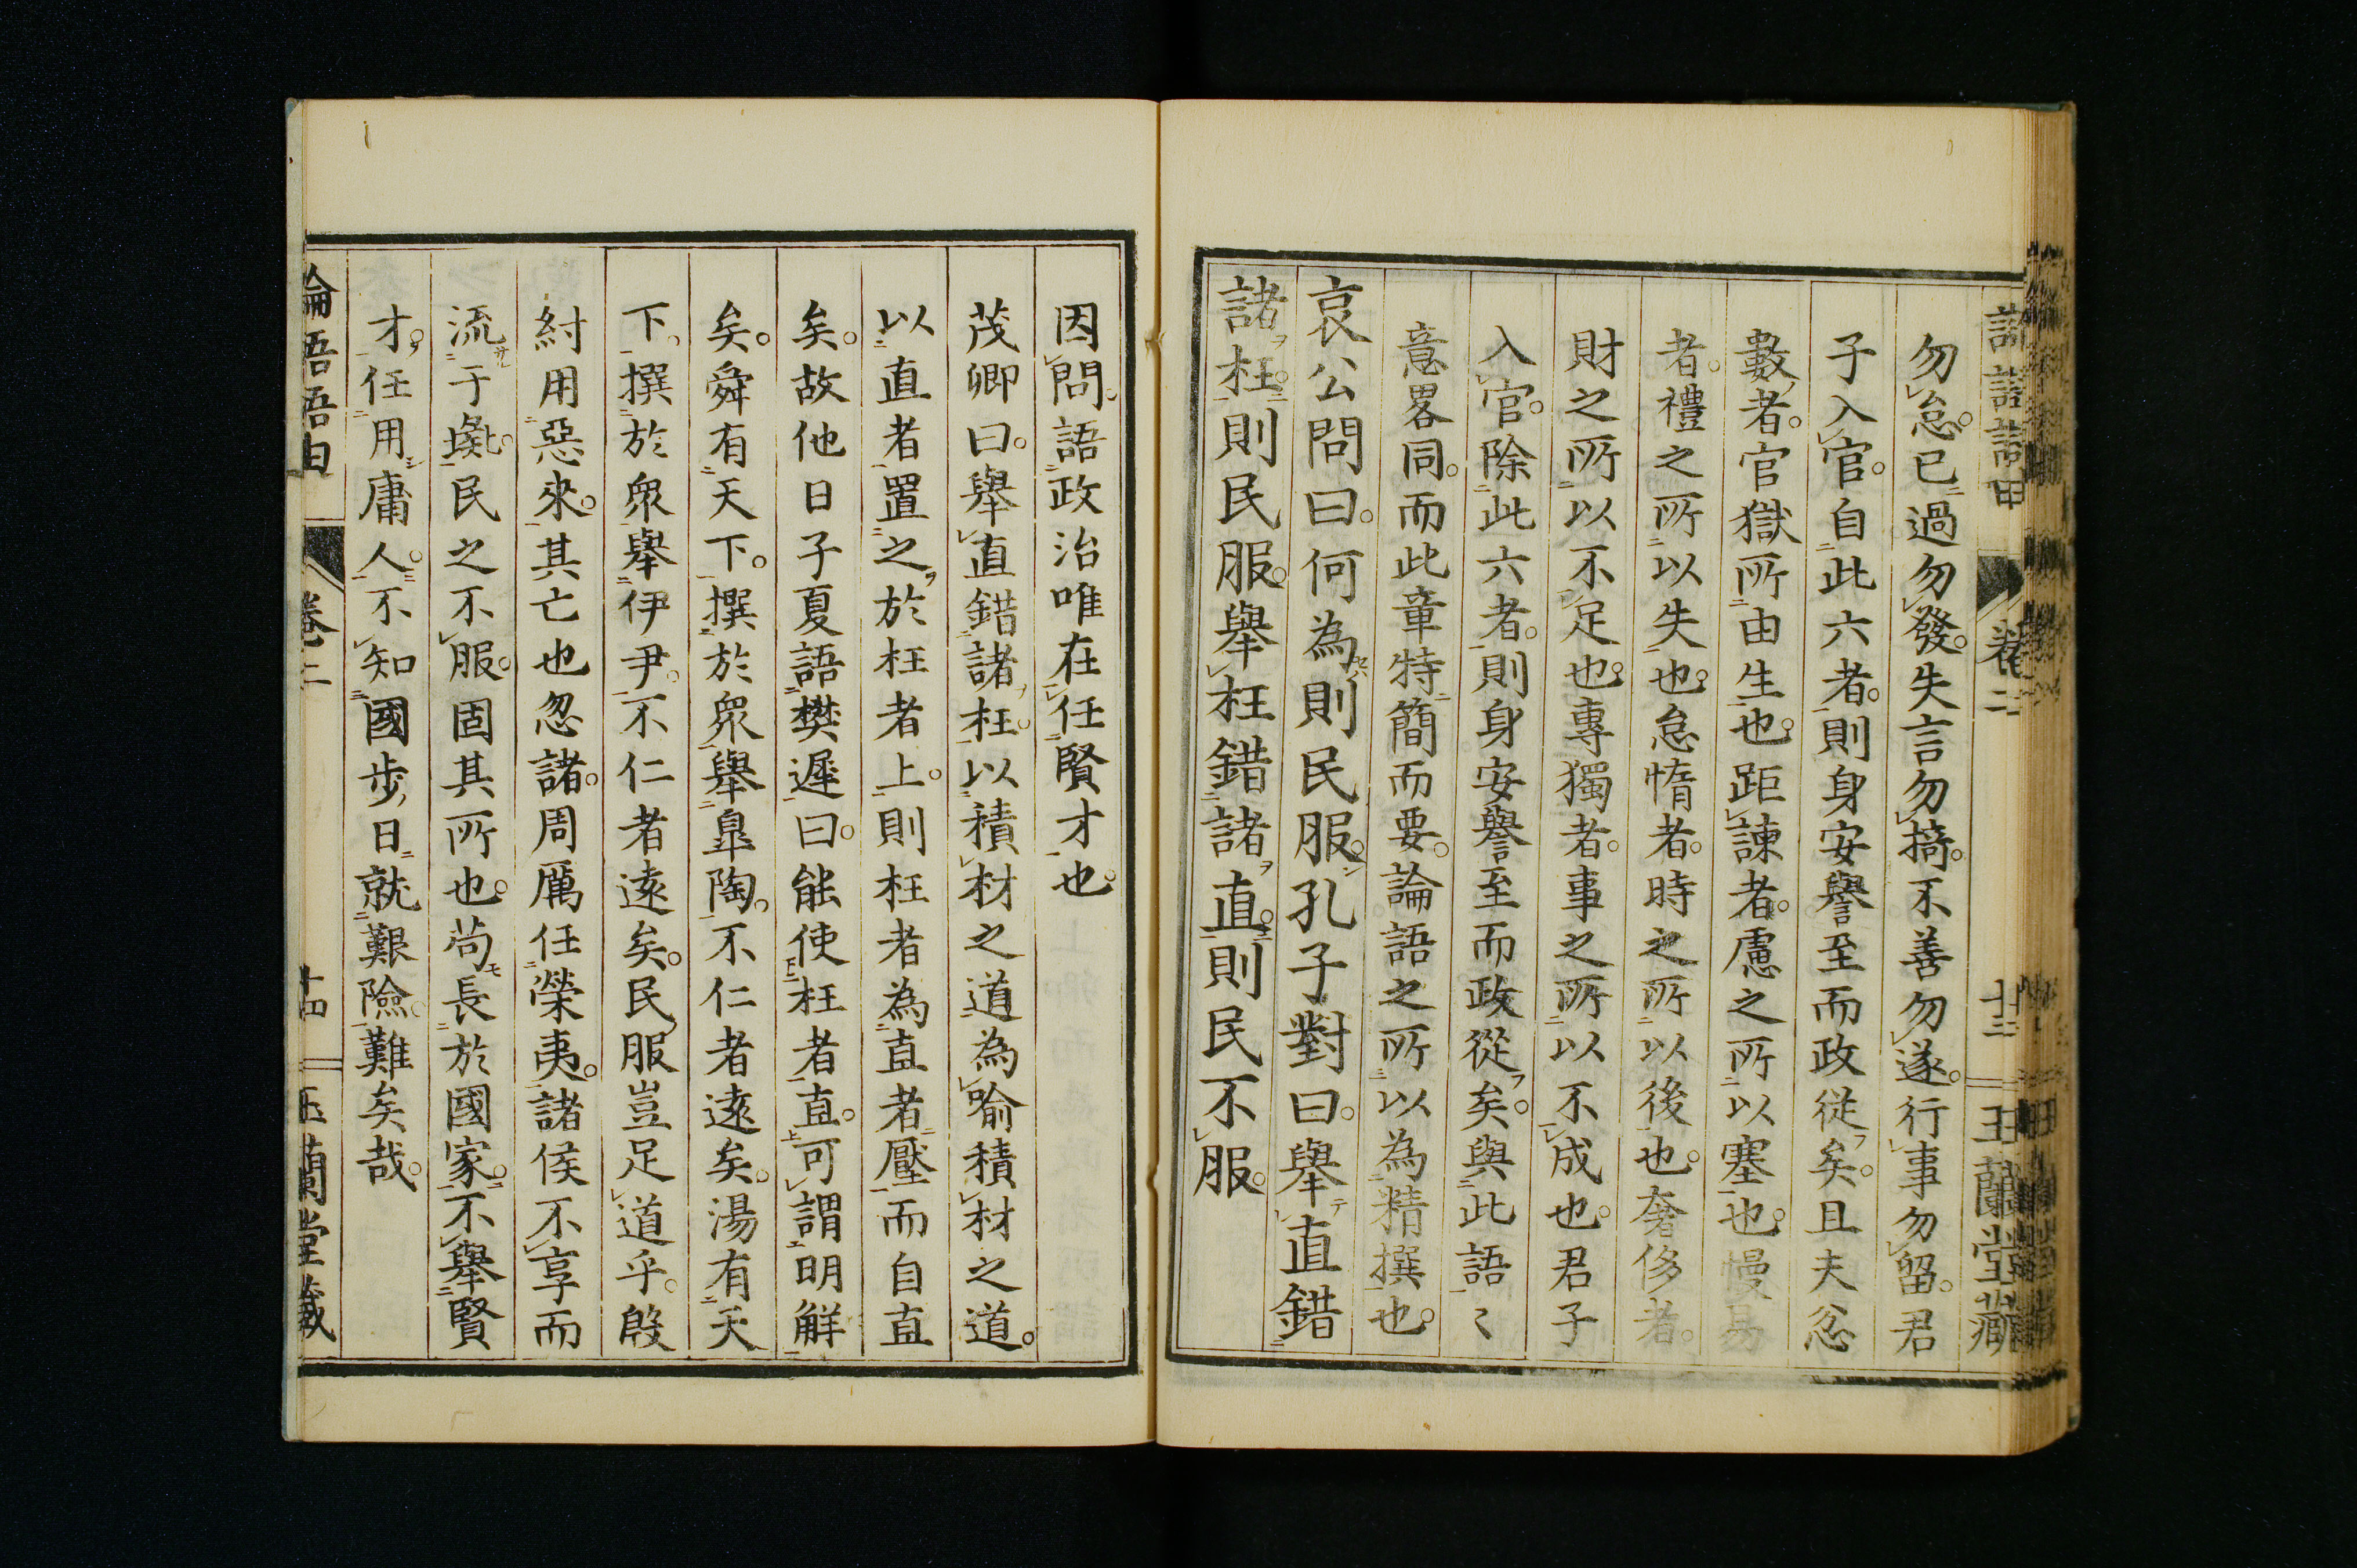 勿怠已過勿發失言勿掎不善勿遂行事勿留君
子入官自此六者則身安譽至而政從矣且夫忿
數者官獄所由生也距諫者慮之所以塞也慢易
者禮之所以失也怠惰者時之所以後也奢侈者
財之所以不足也專獨者事之所以不成也君子
入官除此六者則身安譽至而政從矣與此語〻
意畧同而此章特簡而要論語之所以為精撰也
哀公問曰何為則民服孔子對曰舉直錯
諸枉則民服舉枉錯諸直則民不服
卷二
十三
玉蘭堂藏
因問語政治唯在任賢才也
茂卿曰舉直錯諸枉以積材之道為喻積材之道
以直者置之於枉者上則枉者為直者壓而自直
矣故他日子夏語樊遲曰能使枉者直可謂明解
矣舜有天下撰於衆舉皐陶不仁者遠矣湯有天
下撰於衆舉伊尹不仁者遠矣民服豈足道乎殷
紂用惡來其亡也忽諸周厲任榮夷諸侯不享而
流于彘民之不服固其所也苟長於國家不舉賢
才任用庸人不知國步日就艱險難矣哉
論語語由
卷二
十四
玉蘭堂藏